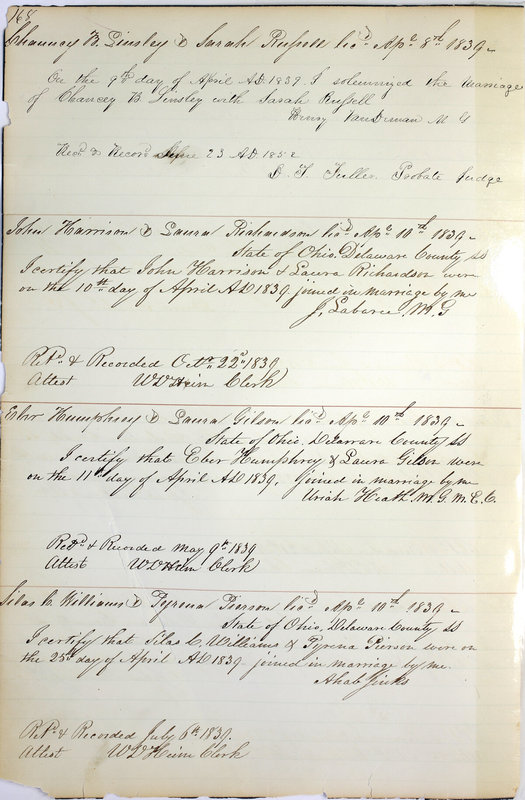 168
Chauncy B. Linsley & Sarah Russell lic.d Ap.l 8th 1839 –
On the 9th day of April A.D. 1839. I solemnized the marriage
of Chancey B Linsley with Sarah Russell
Henry VanDeman M G
Rec.d & Record June 23 A.D. 1852
D. T. Fuller Probate Judge
John Harrison & Laura Richardson lic.d Ap.l 10th 1839 –
State of Ohio, Delaware County SS
I certify that John Harrison & Laura Richardson were
on the 10th day of April AD 1839 joined in marriage by me
J. Labaree M.G
Ret.d & Recorded Oct.r 22d 1839
Attest Clerk
Eber Humphrey & Laura Gilson lic.d Ap.l 10th 1839 –
State of Ohio Delaware County SS
I certify that Eber Humphrey & Laura Gilson were
on the 11th day of April AD 1839. joined in marriage by me
Uriah Heath, M. G. M. E. C.
Ret.d & Recorded May 9th 1839
Attest Clerk
Silas C. Williams & Pyrena Pierson lic.d Ap.l 10th 1839 –
State of Ohio, Delaware County SS
I certify that Silas C. Williams & Pyrena Pierson were on
the 25th day of April AD 1839 joined in marriage by me.
Ahab Jinks
Ret.d & Recorded July 6th 1839.
Attest Clerk